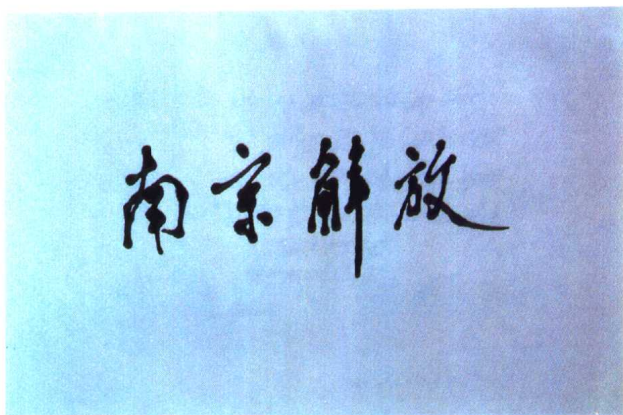 南京解放